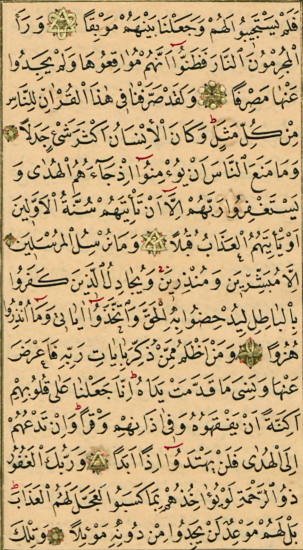 فَلَمْ يَسْتَجِيبُوا لَهُمْ وَجَعَلْنَا بَيْنَهُمْ مَوْبِقًا وَرَاَ
الْمُجْرِمُونَ النَّارَ فَظَنُّوا اَنَّهُمْ مُوَاقِعُوهَا وَلَمْ يَجِدُوا
عَنْهَا مَصْرِفًا وَلَقَدْ صَرَّفْنَا فِي هٰذَا الْقُرْاٰنِ لِلنَّاسِ
مِنْ كُلِّ مَثَلٍ وَكَانَ الْاِنْسَانُ اَكْثَرَ شَيْءٍ جَدَلًا
وَمَا مَنَعَ النَّاسَ اَنْ يُؤْمِنُوا اِذْ جَاءَهُمُ الْهُدٰى وَ
يَسْتَغْفِرُوا رَبَّهُمْ اِلَّا اَنْ تَأْتِيَهُمْ سُنَّةُ الْاَوَّلِينَ
اَوْ يَأْتِيَهُمُ الْعَذَابُ قُبُلًا وَمَا نُرْسِلُ الْمُرْسَلِينَ
اِلَّا مُبَشِّرِينَ وَمُنْذِرِينَ وَيُجَادِلُ الَّذِينَ كَفَرُوا
بِالْبَاطِلِ لِيُدْحِضُوا بِهِ الْحَقَّ وَاتَّخَذُوا اٰيَاتِي وَمَا اُنْذِرُوا
هُزُوًا وَمَنْ اَظْلَمُ مِمَّنْ ذُكِّرَ بِاٰيَاتِ رَبِّهِ فَاَعْرَضَ
عَنْهَا وَنَسِيَ مَا قَدَّمَتْ يَدَاهُ اِنَّا جَعَلْنَا عَلٰى قُلُوبِهِمْ
اَكِنَّةً اَنْ يَفْقَهُوهُ وَفِي اٰذَانِهِمْ وَقْرًا وَاِنْ تَدْعُهُمْ
اِلَى الْهُدٰى فَلَنْ يَهْتَدُوا اِذًا اَبَدًا وَرَبُّكَ الْغَفُورُ
ذُو الرَّحْمَةِ لَوْ يُؤَاخِذُهُمْ بِمَا كَسَبُوا لَعَجَّلَ لَهُمُ الْعَذَابَ
بَلْ لَهُمْ مَوْعِدٌ لَنْ يَجِدُوا مِنْ دُونِهِ مَوْئِلًا وَتِلْكَ